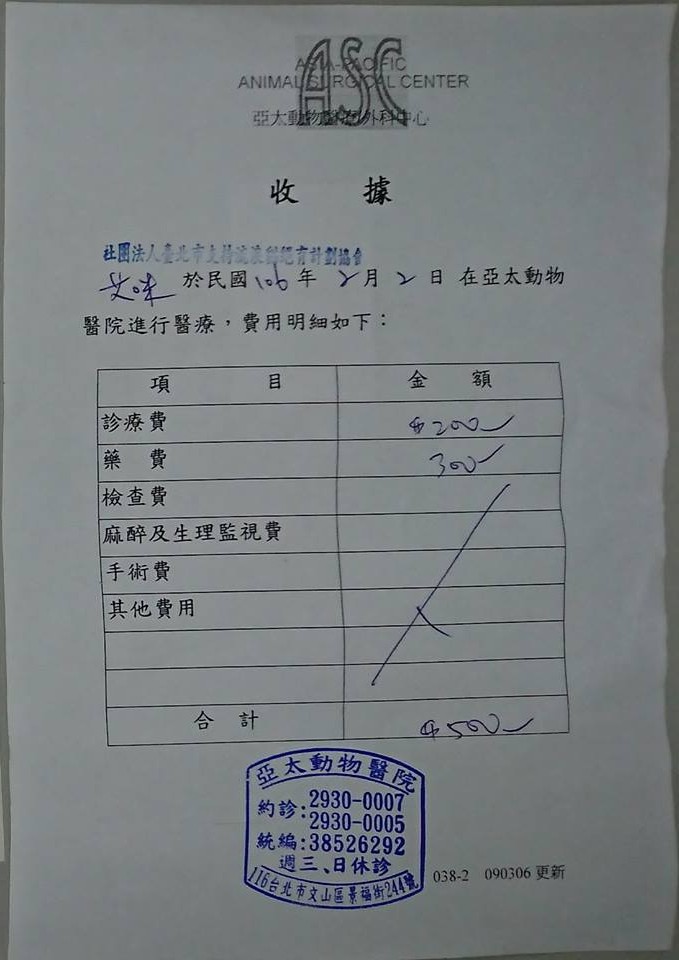 ASC
ASIA-PACIFIC
ANIMAL SURGICAL CENTER
亞太動物醫院外科中心
收 據
社團法人臺北市支持流浪貓絕育計劃協會
於民國106年 2月 2日 在亞太動物
醫院進行醫療，費用明細如下：
項 目 金 額
診療費 $200
藥 費 300
檢查費
麻醉及生理監視費
手術費
其他費用
合 計 $500
亞太動物醫院
約診:2930-0007
2930-0005
統編:38526292
週三、日休診
116台北市文山區景福街244號
038-2 090306 更新